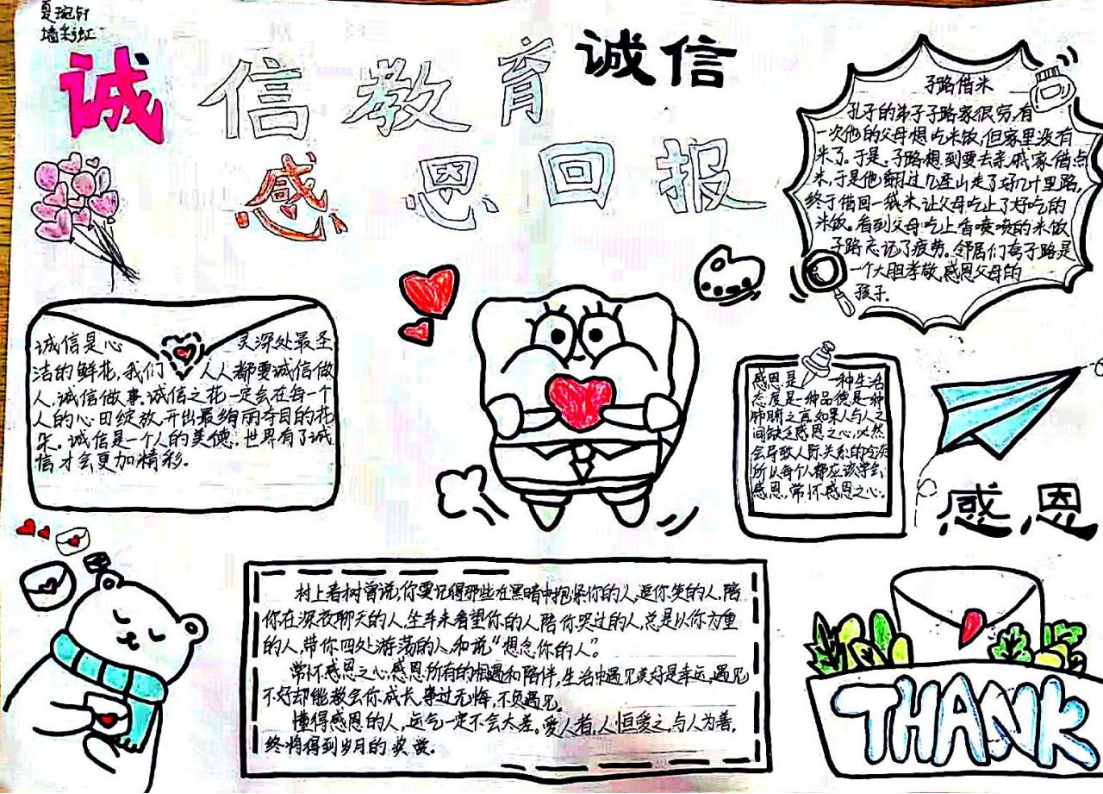 夏琬钘
墙彩虹
诚信教育
诚信
感恩回报
子路借米
孔子的弟子子路家很穷,有
一次他的父母想吃米饭,但家里没有
米了。于是,子路想到要去亲戚家借点
米,于是他翻过几座山走了好几十里路,
终于借回一袋米,让父母吃上了好吃的
米饭。看到父母吃上香喷喷的米饭
子路忘记了疲劳。邻居们夸子路是
一个大胆孝敬,感恩父母的
孩子.
诚信是心灵深处最圣
洁的鲜花,我们人人都要诚信做
人,诚信做事.诚信之花一定会在每一个
人的心田绽放,开出最绚丽夺目的花
朵。诚信是一个人的美德,世界有了诚
信才会更加精彩.
感恩是一种生活
态度是一种品德是一种
肺腑之言,如果人与人之
间缺乏感恩之心,必然
会导致人际关系的冷淡
所以每个人都应该学会
感恩,常怀感恩之心。
感恩
村上春树曾说,你要记得那些在黑暗中抱紧你的人,逗你笑的人,陪
你在深夜聊天的人,坐车来看望你的人,陪你哭过的人,总是以你为重
的人,带你四处游荡的人,和说“想念你的人”。
常怀感恩之心,感恩所有的相遇和陪伴,生活中遇见美好是幸运,遇见
不好却能教会你成长,来过无悔,不负遇见。
懂得感恩的人,运气一定不会太差。爱人者,人恒爱之,与人为善,
终将得到岁月的奖赏.
THANK